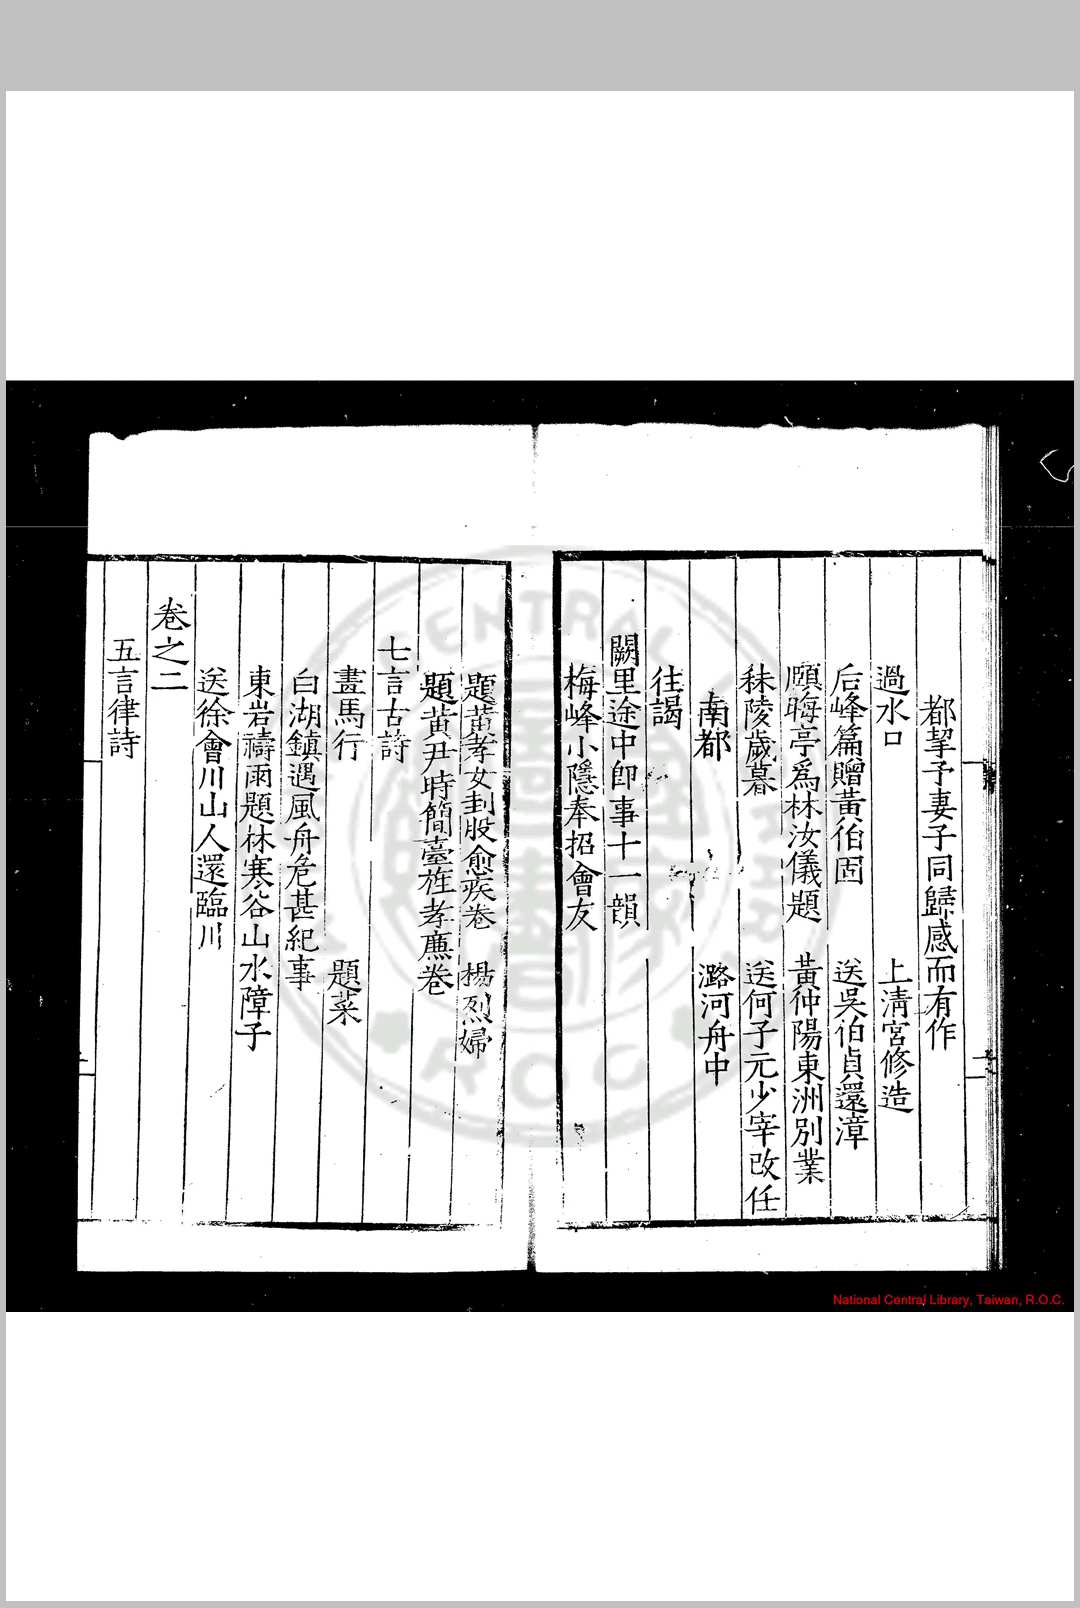 都挈予妻子同歸感而有作
過水口　上清宮修造
后峰篇贈黃伯固　送吳伯貞還漳
頤晦亭爲林汝儀題　黃仲陽東洲別業
秣陵歲暮　送何子元少宰改任
南都　潞河舟中
往謁
闕里途中即事十一韻
梅峰小隱奉招會友
題黃孝女刲股愈疾卷　楊烈婦
題黃尹時簡臺旌孝廉卷
七言古詩
畫馬行　題菜
白湖鎮遇風舟危甚紀事
東岩禱雨題休寒谷山水障子
送徐會川山人還臨川
卷之二
五言律詩
National Central Library, Taiwan, R.O.C.
CENTRAL
R.O.C